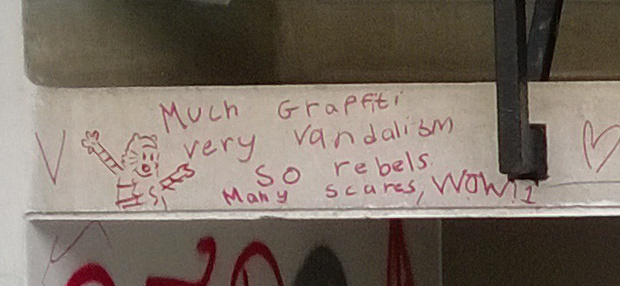 Much Graffiti
very vandalism
so rebels
Many scares, WOW!!